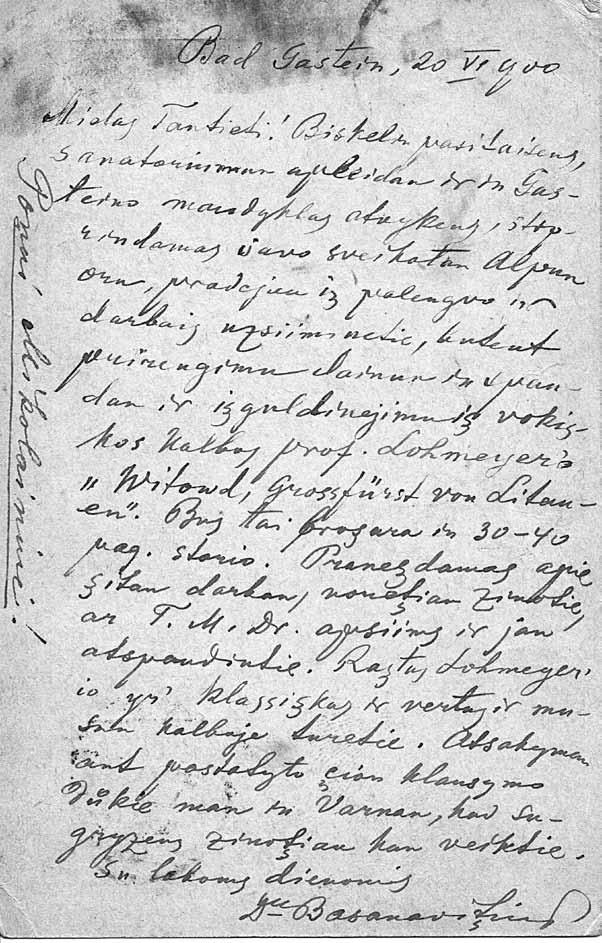 Bad Gastein, 20 VI 900
Mielas Tautieti! Biskelin pasitaisęs,
sanatoriumun apleidau ir in Gas-
teino maudyklas atvykęs, stip-
rindamas savo sveikatan Alpun
oru, pradėjau iš palengvo ir
darbais užsiiminetie, butent
parengimu dainun in spau-
dan ir išguldinejimu iš vokiš-
kos kalbos prof. Lohmeyer's
„Witowd, Grossfürst von Litau-
en“. Bus tai brošura in 30-40
pag. storio. Pranešdamas apie
šitan darban, norėčiau žinotie,
ar T. M. Dr. apsiims ir jan
atspaudintie. Raštas Lohmeyer-
io yr' klassiškas ir vertas ir mu-
sun kalboje turetie. Atsakyman
ant pastatyto čion klausymo
důkie man in Varnan, kad su-
gryžęs žinočiau kan veiktie.
Su laboms dienomis
Dras Basanavičius
Ponui Mikolainiui!